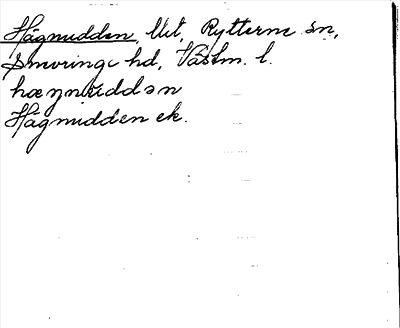 Hägnudden, Ut, Rytterne sn,
Snevringe hd, Västm. l.
hæŋnuddən
Hägnudden ek.